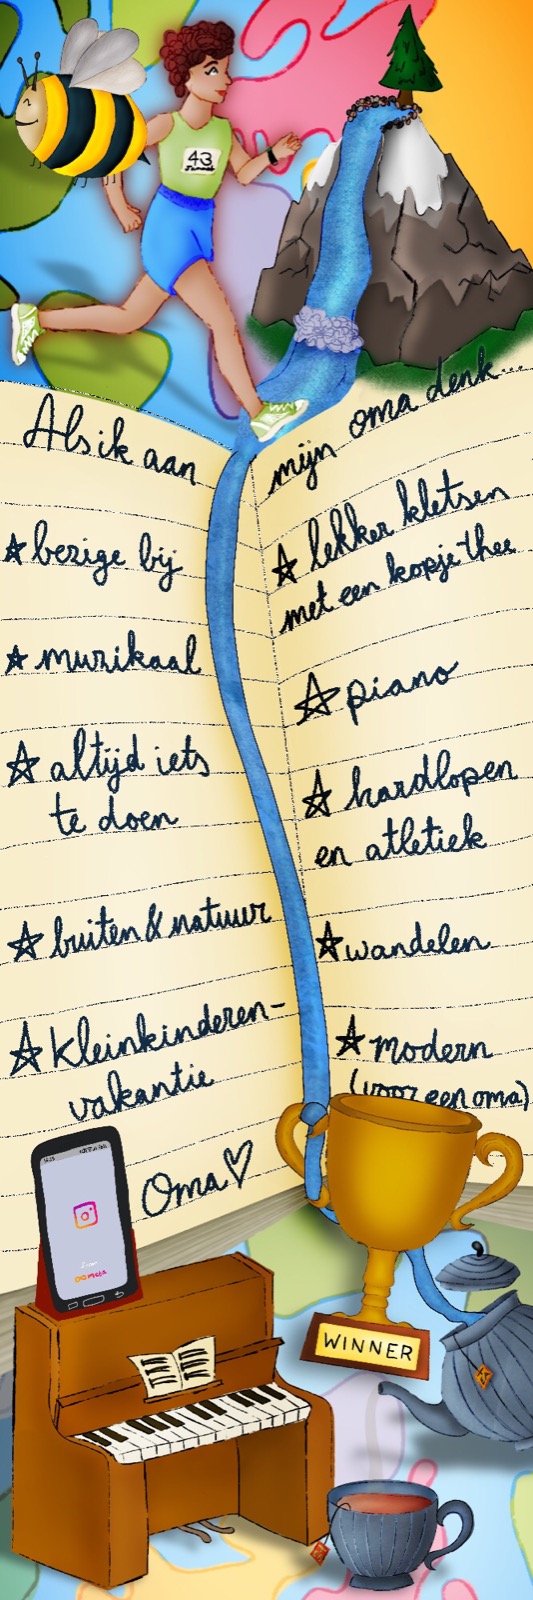 43
Als ik aan
mijn oma denk...
★ bezige bij
★ muzikaal
★ altijd iets
te doen
★ buiten & natuur
★ Kleinkinderen-
vakantie
Oma♡
★ lekker kletsen
met een kopje thee
★ piano
★ hardlopen
en atletiek
★ wandelen
★ modern
(voor een oma)
from
meta
WINNER